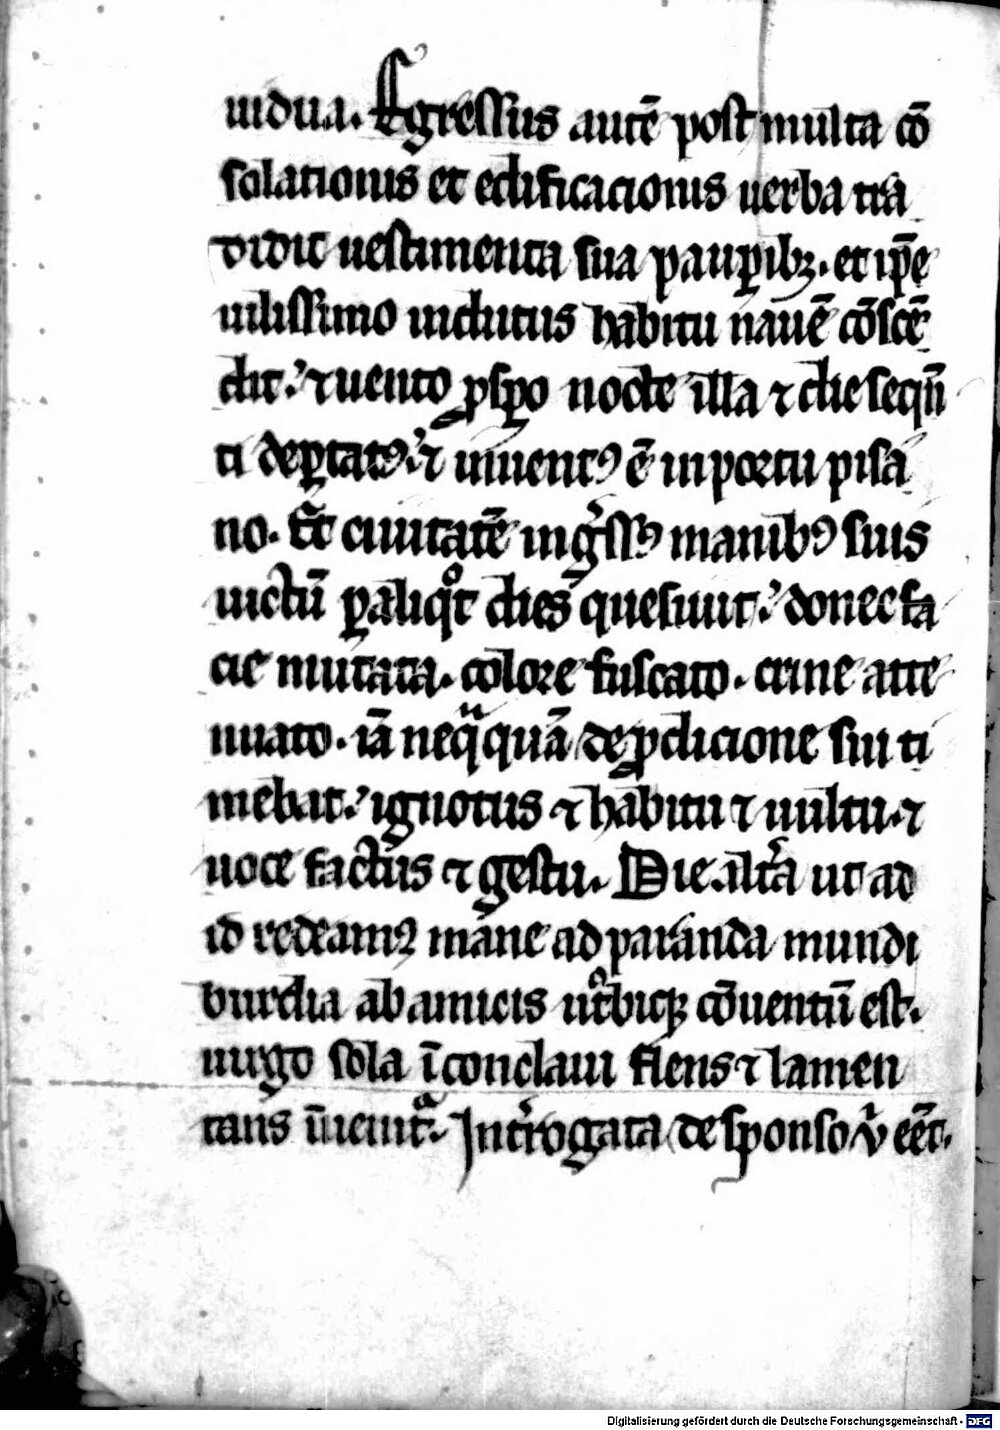 uidua. Egressus autē post multa cō
solationis et edificacionis uerba tra
didit uestimenta sua paup̲ibꝫ. et ip̄e
uilissimo indutus habitu nauē cōscē
dit. ⁊ uento ꝓsp̲o nocte illa ⁊ die sequn̄
ti dep̲tatꝰ. ⁊ inuentꝰ ē in portu pisa
no. Et ciuitatē ing̍ssꝰ manibꝰ suis
uictū p̲ aliqͦt dies quesiuit. donec fa
cie mutata. colore fuscato. crine atte
nuato. iā neqͣquā de ꝓdicione sui ti
mebat. ignotus ⁊ habitu ⁊ uultu. ⁊
uoce factus ⁊ gestu. Die alt̍a ut ad
id redeamꝰ mane ad paranda mundi
burdia ab amicis ut̍bicꝫ cōuentū est.
uirgo sola ī conclaui flens ⁊ lamen
tans īuenitᷓ. Int̍rogata de sponso v̍ eēt.
Digitalisierung gefördert durch die Deutsche Forschungsgemeinschaft - DFG